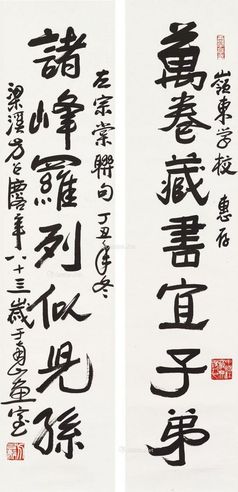 萬卷藏書宜子弟
嶺東学校
惠存
諸峰羅列似児孫
左宗棠聯句 丁丑年冬
梁溪 年八十三歲于 画室